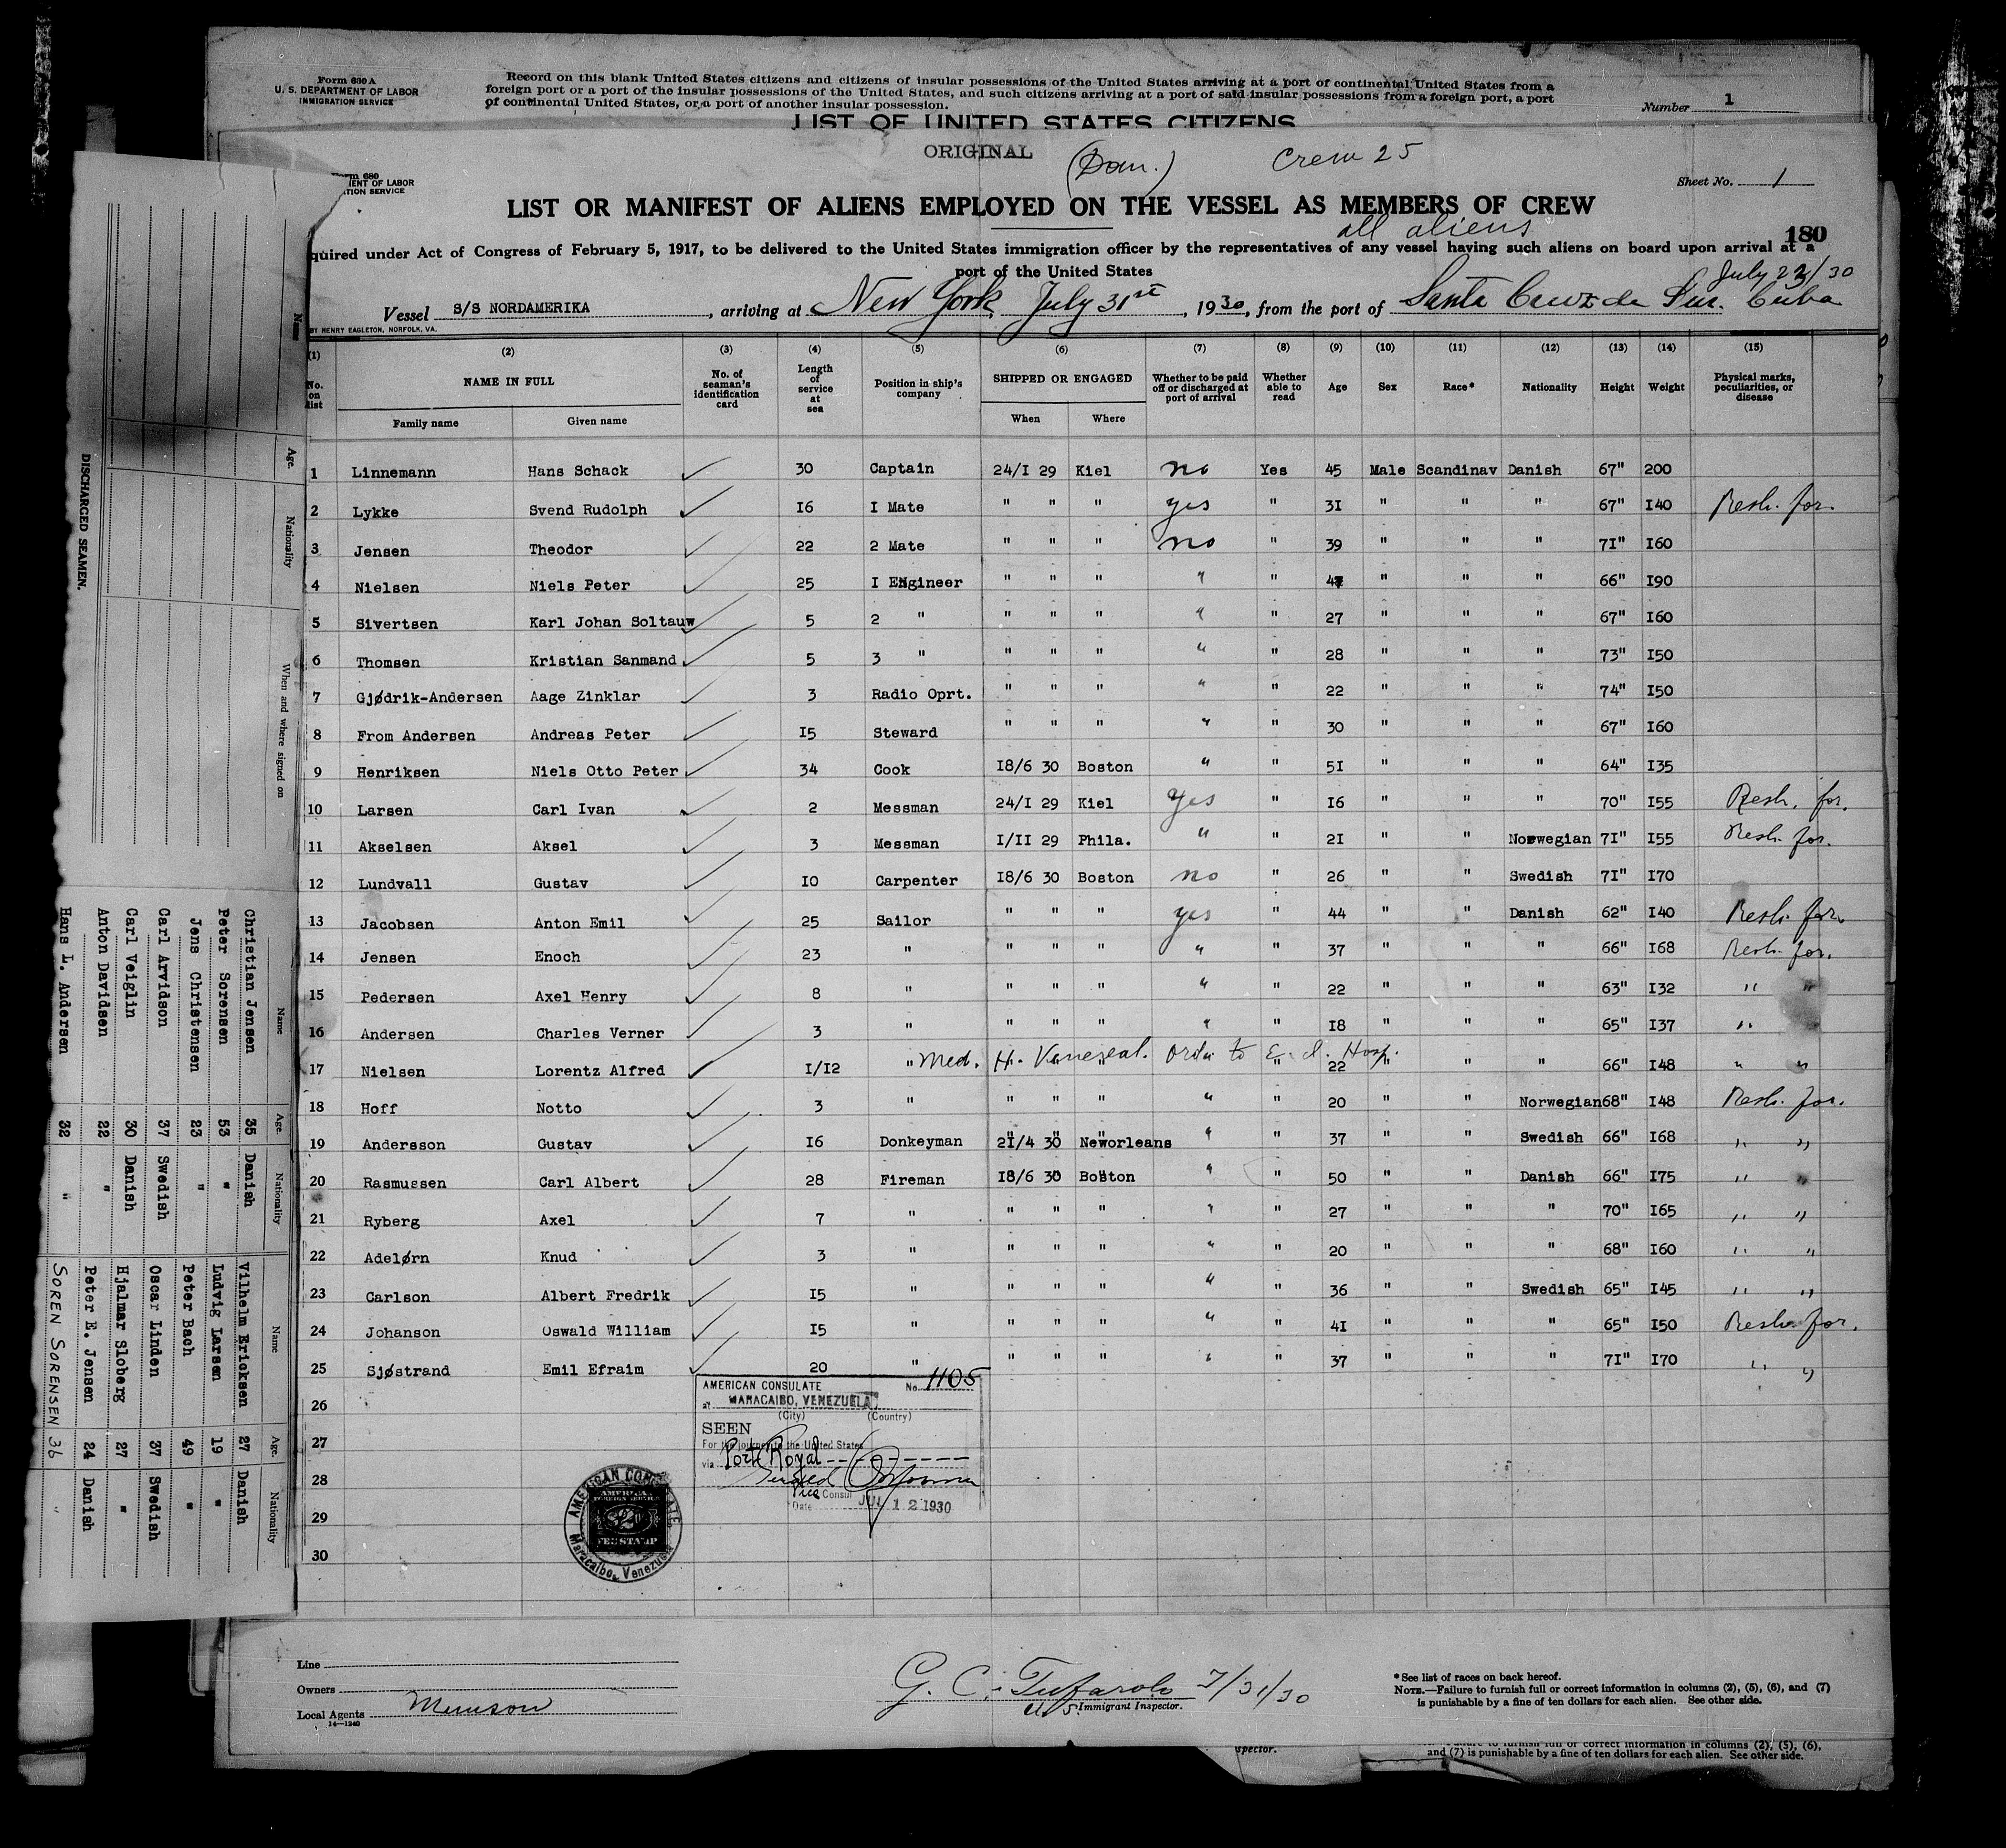 Form 630 A
U. S. DEPARTMENT OF LABOR
IMMIGRATION SERVICE
Record on this blank United States citizens and citizens of insular possessions of the United States arriving at a port of continental United States from a
foreign port or a port of the insular possessions of the United States, and such citizens arriving at a port of said insular possessions from a foreign port, a port
of continental United States, or a port of another insular possession.
Number 1
LIST OF UNITED STATES CITIZENS
ORIGINAL (Dan.) Crew 25
rm 680
MENT OF LABOR
TION SERVICE
Sheet No. 1
LIST OR MANIFEST OF ALIENS EMPLOYED ON THE VESSEL AS MEMBERS OF CREW
all aliens
180
quired under Act of Congress of February 5, 1917, to be delivered to the United States immigration officer by the representatives of any vessel having such aliens on board upon arrival at a
port of the United States
July 23/30
Vessel S/S NORDAMERIKA, arriving at New York July 31st, 1930, from the port of Santa Cruz de Sur. Cuba
BY HENRY EAGLETON, NORFOLK, VA.
(1) (2) (3) (4) (5) (6) (7) (8) (9) (10) (11) (12) (13) (14) (15)
No. on list NAME IN FULL No. of seaman's identification card Length of service at sea Position in ship's company SHIPPED OR ENGAGED Whether to be paid off or discharged at port of arrival Whether able to read Age Sex Race* Nationality Height Weight Physical marks, peculiarities, or disease
Family name Given name When Where
1 Linnemann Hans Schack ✓ 30 Captain 24/I 29 Kiel no Yes 45 Male Scandinav Danish 67" 200
2 Lykke Svend Rudolph ✓ I6 I Mate " " " yes " 3I " " " 67" I40 Resh. for.
3 Jensen Theodor ✓ 22 2 Mate " " " no " 39 " " " 7I" I60
4 Nielsen Niels Peter ✓ 25 I Engineer " " " " " 47 " " " 66" I90
5 Sivertsen Karl Johan Soltauw ✓ 5 2 " " " " " " 27 " " " 67" I60
6 Thomsen Kristian Sanmand ✓ 5 3 " " " " " " 28 " " " 73" I50
7 Gjødrik-Andersen Aage Zinklar ✓ 3 Radio Oprt. " " " " " 22 " " " 74" I50
8 From Andersen Andreas Peter ✓ I5 Steward " " " " " 30 " " " 67" I60
9 Henriksen Niels Otto Peter ✓ 34 Cook I8/6 30 Boston " " 5I " " " 64" I35
10 Larsen Carl Ivan ✓ 2 Messman 24/I 29 Kiel yes " I6 " " " 70" I55 Resh. for.
11 Akselsen Aksel ✓ 3 Messman I/II 29 Phila. " " 2I " " Norwegian 7I" I55 Resh. for.
12 Lundvall Gustav ✓ IO Carpenter I8/6 30 Boston no " 26 " " Swedish 7I" I70
13 Jacobsen Anton Emil ✓ 25 Sailor " " " yes " 44 " " Danish 62" I40 Resh. for.
14 Jensen Enoch ✓ 23 " " " " " " 37 " " " 66" I68 Resh. for.
15 Pedersen Axel Henry ✓ 8 " " " " " " 22 " " " 63" I32 " "
16 Andersen Charles Verner ✓ 3 " " " " " " I8 " " " 65" I37 "
17 Nielsen Lorentz Alfred ✓ I/I2 " Med. H. Venereal. Order to E. I. Hosp. " 22 " " " 66" I48 " "
18 Hoff Notto ✓ 3 " " " " " " 20 " " Norwegian 68" I48 Resh. for.
19 Andersson Gustav ✓ I6 Donkeyman 2I/4 30 Neworleans " " 37 " " Swedish 66" I68 " "
20 Rasmussen Carl Albert ✓ 28 Fireman I8/6 30 Boston " " 50 " " Danish 66" I75 " "
21 Ryberg Axel ✓ 7 " " " " " " 27 " " " 70" I65 " "
22 Adelørn Knud ✓ 3 " " " " " " 20 " " " 68" I60 " "
23 Carlson Albert Fredrik ✓ I5 " " " " " " 36 " " Swedish 65" I45 " "
24 Johanson Oswald William ✓ I5 " " " " " " 4I " " " 65" I50 Resh. for.
25 Sjøstrand Emil Efraim ✓ 20 " " " " " " 37 " " " 7I" I70 " "
26
27
28
29
30
AMERICAN CONSULATE No. 1105
at MARACAIBO, VENEZUELA
(City) (Country)
SEEN
For the journey to the United States
via Port Royal
Vice Consul
Date JUL 12 1930
AMERICAN CONSULATE
Maracaibo, Venezuela
AMERICAN
FOREIGN SERVICE
FEE STAMP
Line
Owners
Local Agents Munson
14—1240
G. C. Tufarolo 7/31/30
U. S. Immigrant Inspector.
*See list of races on back hereof.
NOTE.—Failure to furnish full or correct information in columns (2), (5), (6), and (7)
is punishable by a fine of ten dollars for each alien. See other side.
spector.
to furnish full or correct information in columns (2), (5), (6),
and (7) is punishable by a fine of ten dollars for each alien. See other side.
DISCHARGED SEAMEN.
Name Age. Nationality When and where signed on
Name Age. Nationality Name Age. Nationality
Christian Jensen 35 Danish Vilhelm Ericksen 27 Danish
Peter Sorensen 53 " Ludvig Larsen 19 "
Jens Christensen 23 " Peter Bach 49 "
Carl Arvidson 37 Swedish Oscar Linden 37 Swedish
Carl Veiglin 30 Danish Hjalmar Sloberg 27 "
Anton Davidsen 22 " Peter E. Jensen 24 Danish
Hans L. Andersen 32 " SOREN SORENSEN 36 "